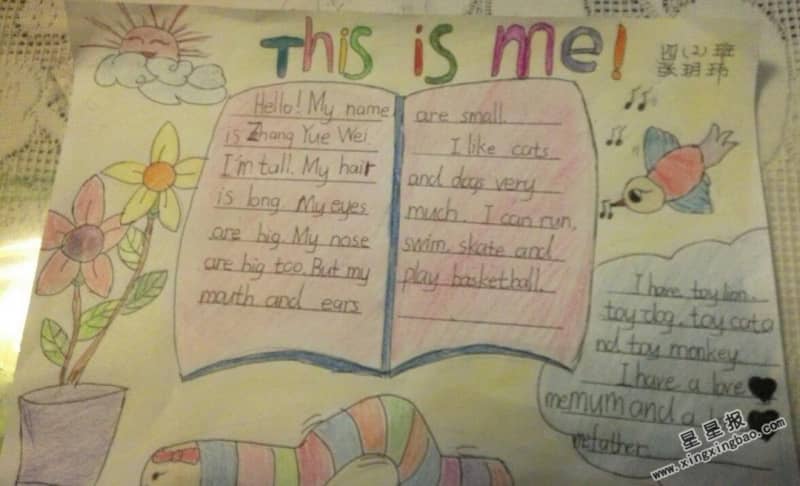 This is me!
四(2)班
张玥玮
Hello! My name
is Zhang Yue Wei.
I'm tall. My hair
is long My eyes
are big. My nose
are big too. But my
mouth and ears
are small.
I like cats
and dogs very
much. I can run,
swim, skate and
play basketball.
I have toy lion,
toy dog, toy cat a
nd toy monkey
I have a love
me mum and a
me father.
星星报
www.xingxingbao.com